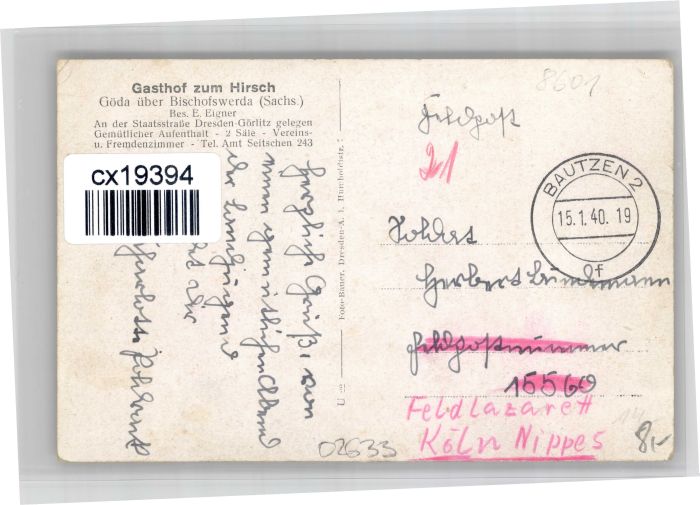 Gasthof zum Hirsch
Göda über Bischofswerda (Sachs.)
Bes. E. Eigner
An der Staatsstraße Dresden-Görlitz gelegen
Gemütlicher Aufenthalt - 2 Säle - Vereins-
u. Fremdenzimmer - Tel. Amt Seitschen 243
cx19394
Herzliche Grüße, von
einem gemütlichen Abend
der
Foto-Bauer, Dresden-A. 1,
8601
Feldpost
21
BAUTZEN 2
15.1.40. 19
f
Soldat
Herbert
Feldpostnummer
15560
Feldlazarett
Köln Nippes
02633
14
8,-